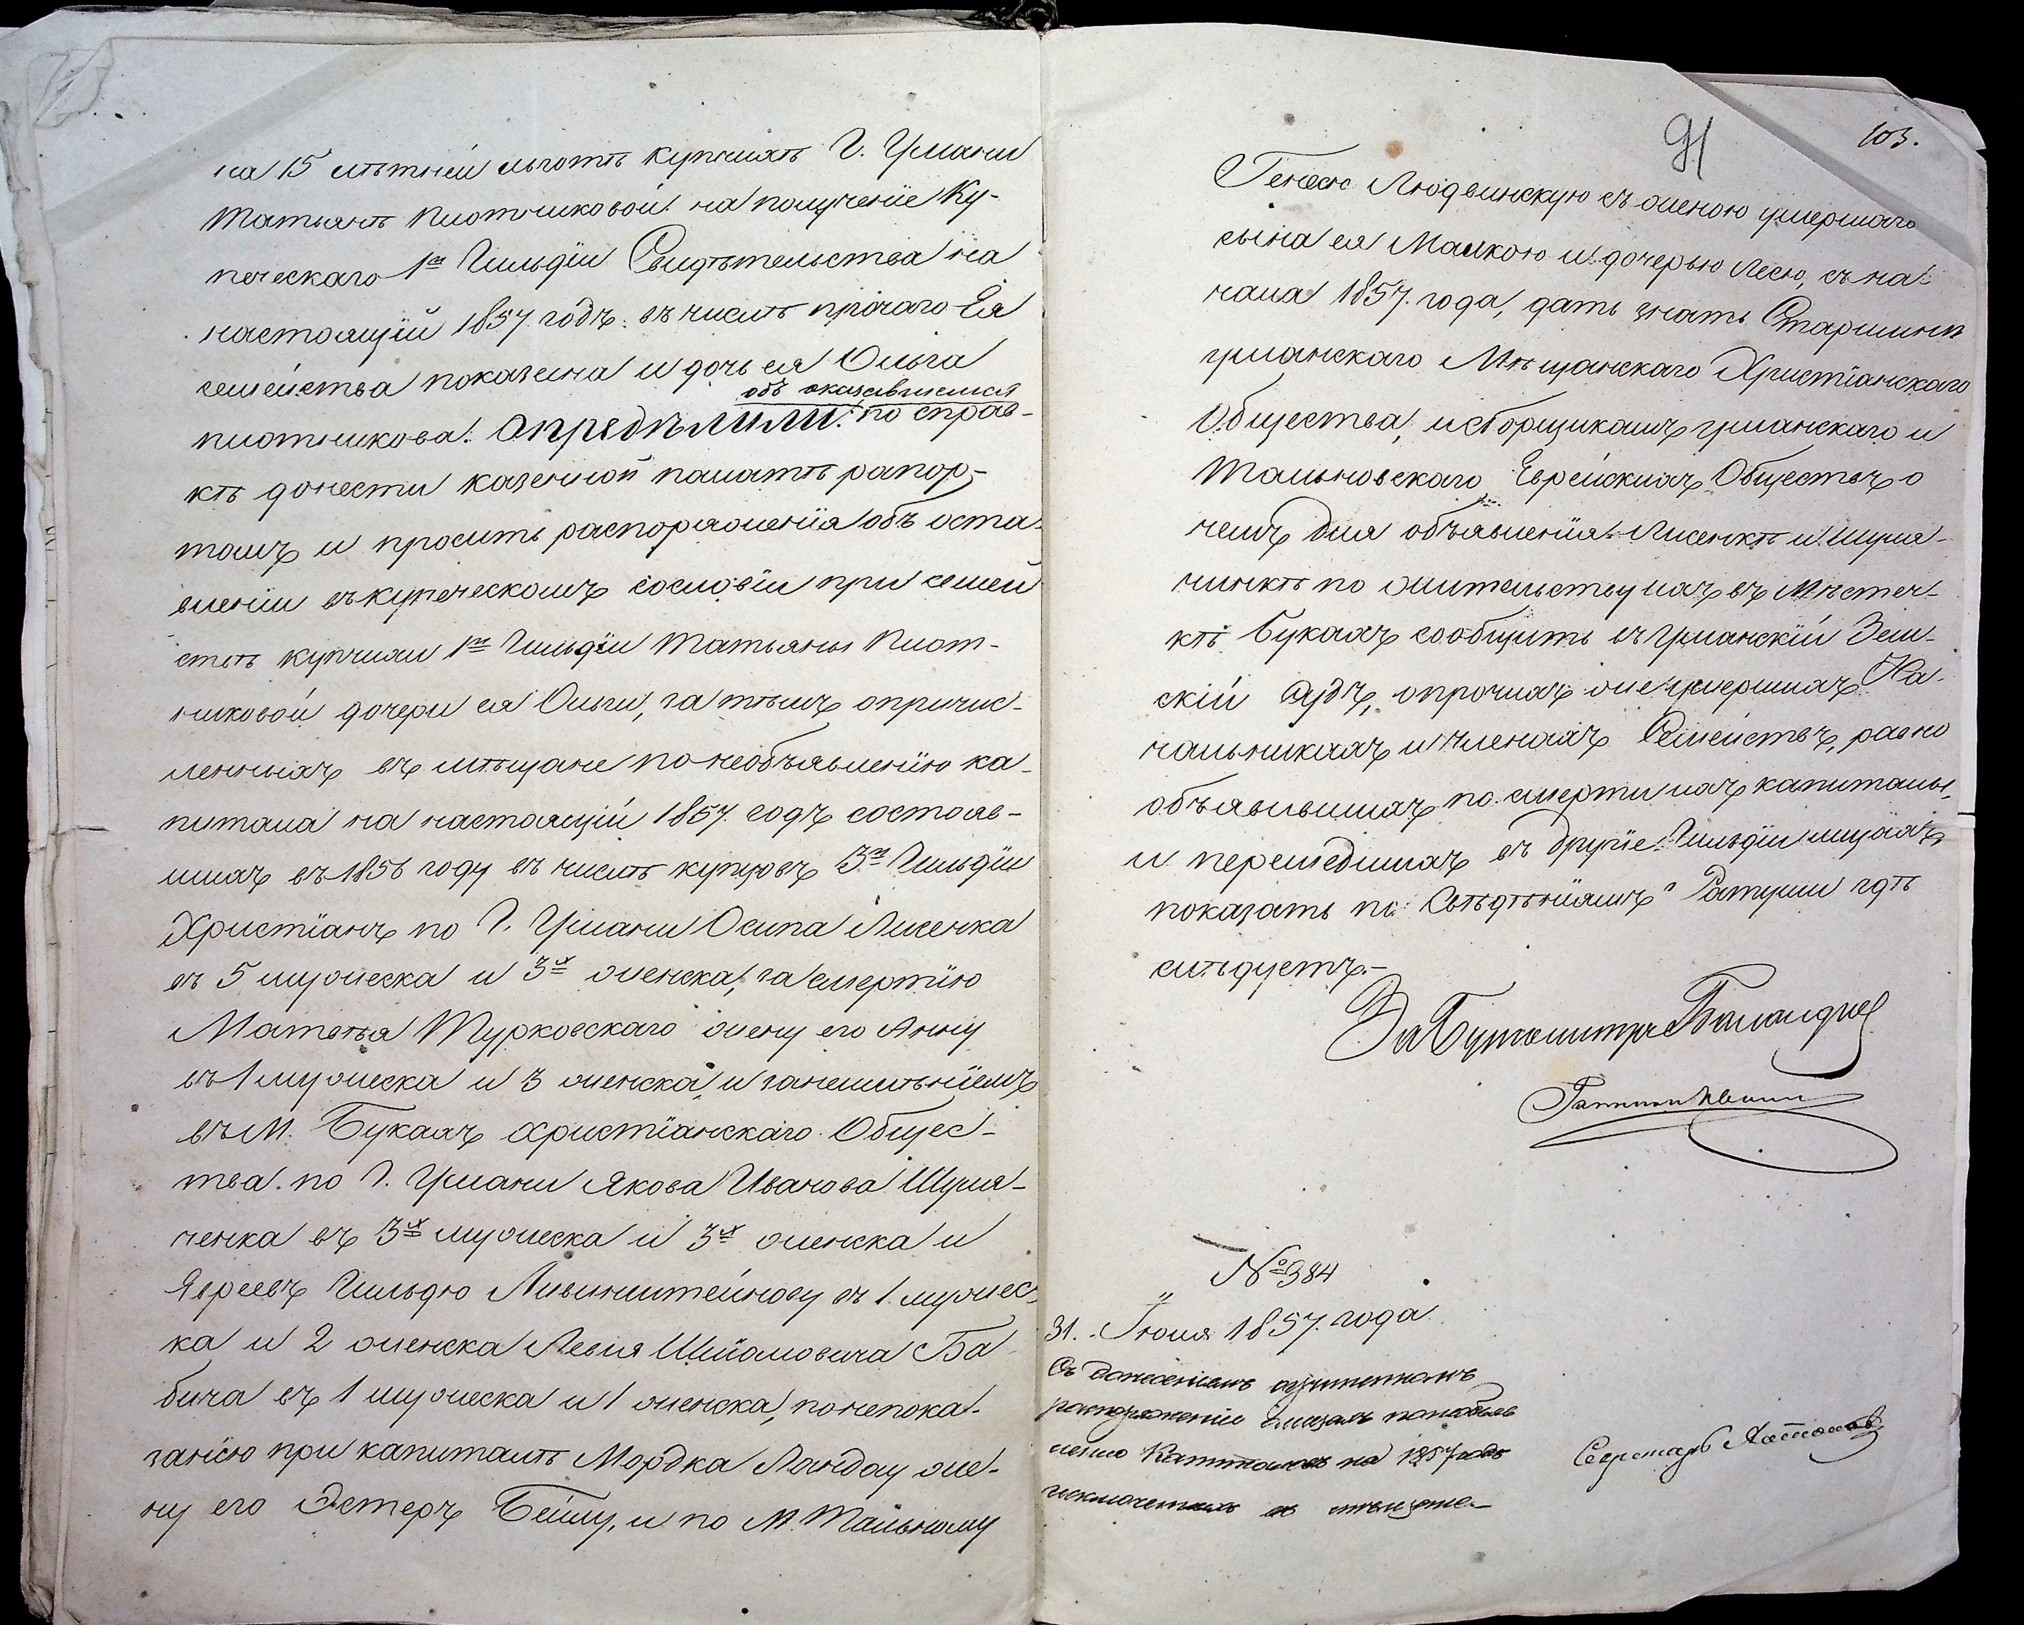 на 15 лѣтней льготѣ купчихѣ Г. Умани
Татьянѣ Плотниковой на полученіе Ку-
печескаго 1й Гильдіи Свидѣтельства на
настоящій 1857 годъ въ числѣ прочаго Ея
семейства показана и дочь ея Ольга
объ оказавшемся
Плотникова. Опредѣлили: по справ-
кѣ донести казенной палатѣ рапор-
томъ и просить распоряженія объ оста-
вленіи въ купеческомъ сословіи при семей
ствѣ купчихи 1й Гильдіи Татьяны Плот-
никовой дочери ея Ольги, за тѣмъ опричис-
ленныхъ въ мѣщане по необъявленію ка-
питала на настоящій 1857 годъ состояв-
шихъ въ 1856 году въ числѣ купцовъ 3й Гильдіи
Христіанъ по Г. Умани Осипа Лисенка
въ 5 мужеска и 3х женска, за смертію
Матвѣя Турковскаго жену его Анну
въ 1 мужеска и 3 женска, и заненмѣніемъ
въ М. Букахъ христіанскаго Общес-
тва по Г. Умани Якова Иванова Шуля-
ченка въ 3х мужеска и 3х женска и
Евреевъ Гильдю Ливинштейнову въ 1 мужес-
ка и 2 женска Левія Шиіомовича Ба
бича въ 1 мужеска и 1 женска, по непока-
занію при капиталѣ Мордка Ландау же-
ну его Эстеръ Бейлу, и по М. Тальному
91
103.
Генесю Людвинскую съ женою умершаго
сына ея Малкою и дочерью Лесю, съ на-
чала 1857 года, дать знать Старшинѣ
уманскаго Мѣщанскаго Христіанскаго
Общества, и сборщикамъ уманскаго и
Тальновскаго Еврейскихъ Обществъ о
чемъ для объявленія Лисенкѣ и Шуля-
чинкѣ по жительству ихъ въ Мѣстеч-
кѣ Букахъ сообщить въ Уманскій Зем-
скій Судъ, о прочихъ же умершихъ На-
чальникахъ и членахъ Семействъ, равно
объявившихъ по смерти ихъ капиталы,
и перешедшихъ въ другіе Гильдіи лицахъ
показать по Свѣдѣніямъ Ратуши гдѣ
слѣдуетъ.-
За Бургомистра
№ 384
31. Іюля 1857 года
Съ донесеніемъ
распоряженіи по необъяв
ленію Капиталовъ на 1857 годъ
Секретарь